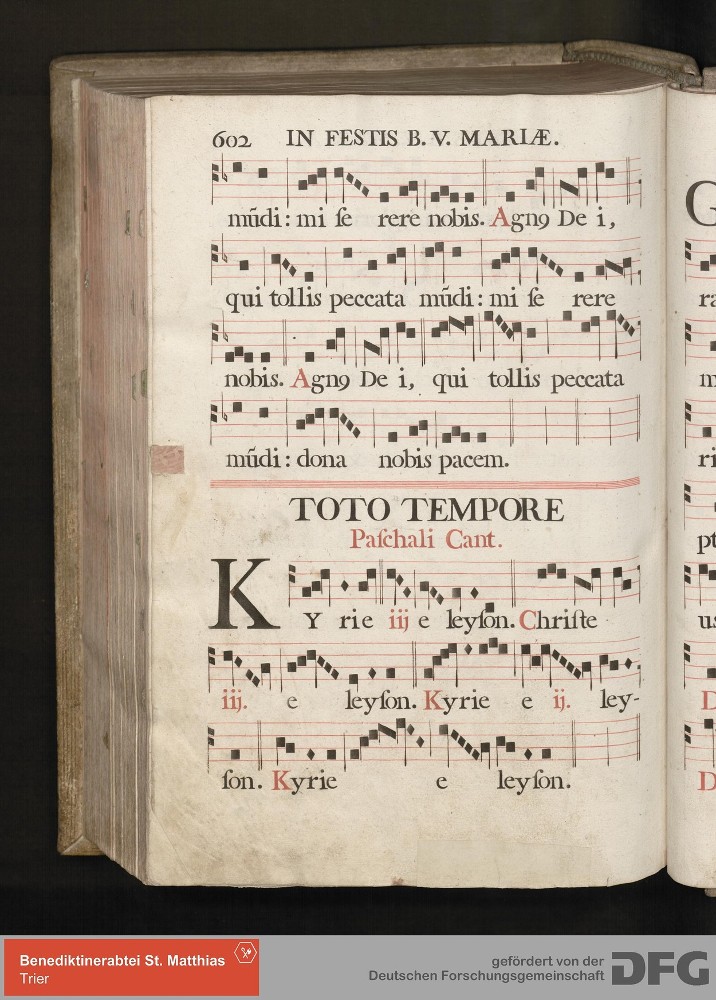 602 IN FESTIS B. V. MARIÆ.
mũdi: mi ſe rere nobis. Agnꝯ De i,
qui tollis peccata mũdi: mi ſe rere
nobis. Agnꝯ De i, qui tollis peccata
mũdi: dona nobis pacem.
TOTO TEMPORE
Paſchali Cant.
KY rie iij e leyſon. Chriſte
iij. e leyſon. Kyrie e ij. ley-
ſon. Kyrie e leyſon.
Benediktinerabtei St. Matthias
Trier
gefördert von der
Deutschen Forschungsgemeinschaft
DFG